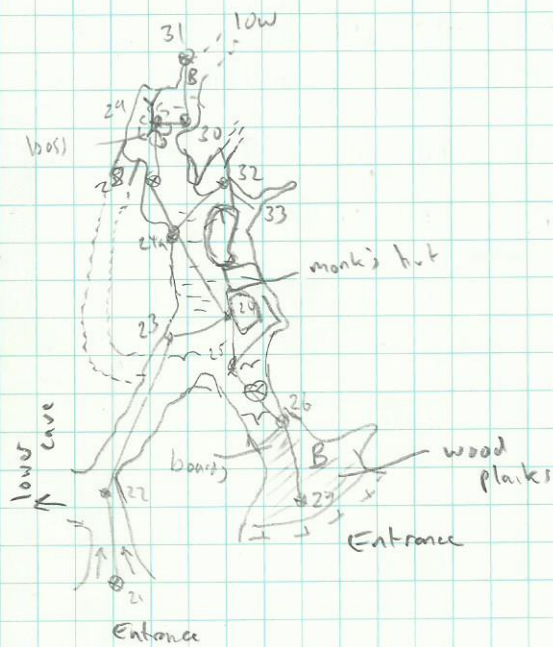 31
low
B
29
30
boss
28
32
33
24a
monk's hut
24
23
25
26
boards
B
wood
planks
lower
cave
22
27
Entrance
21
Entrance